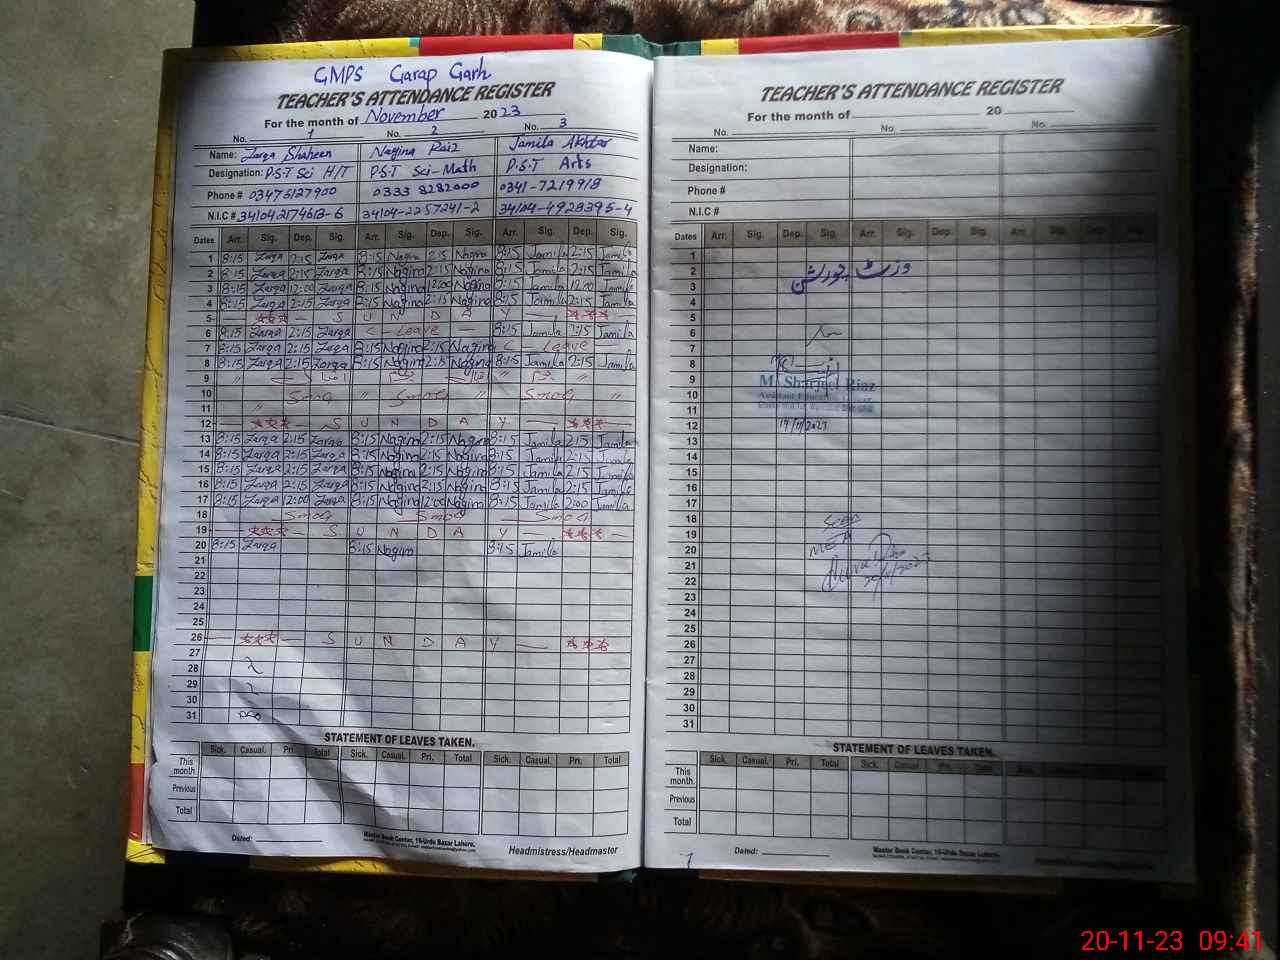 GMPS Garap Garh
TEACHER'S ATTENDANCE REGISTER
For the month of November 2023
No. 1 No. 2 No. 3
Name: Zarqa Shaheen Nagina Raiz Jamila Akhtar
Designation: P.S.T Sci H/T P.S.T Sci-Math P.S.T Arts
Phone # 03475127900 0333 8282000 0341-7219918
N.I.C # 34104-2257241-2 34104-4928395-4
Dates Arr. Sig. Dep. Sig. Arr. Sig. Dep. Sig. Arr. Sig. Dep. Sig.
1 8:15 Zarqa 2:15 Zarqa 8:15 Nagina 2:15 Nagina 8:15 Jamila 2:15 Jamila
2 8:15 Zarqa 2:15 Zarqa 8:15 Nagina 2:15 Nagina 8:15 Jamila 2:15 Jamila
3 8:15 Zarqa 12:00 Zarqa 8:15 Nagina 12:00 Nagina 8:15 Jamila 12:00 Jamila
4 8:15 Zarqa 2:15 Zarqa 8:15 Nagina 2:15 Nagina 8:15 Jamila 2:15 Jamila
5 S U N D A Y
6 8:15 Zarqa 2:15 Zarqa C - Leave 8:15 Jamila 2:15 Jamila
7 8:15 Zarqa 2:15 Zarqa 8:15 Nagina 2:15 Nagina C - Leave
8 8:15 Zarqa 2:15 Zarqa 8:15 Nagina 2:15 Nagina 8:15 Jamila 2:15 Jamila
9
10 SmoG " SmoG " SmoG "
11 "
12 S U N D A Y
13 8:15 Zarqa 2:15 Zarqa 8:15 Nagina 2:15 Nagina 8:15 Jamila 2:15 Jamila
14 8:15 Zarqa 2:15 Zarqa 8:15 Nagina 2:15 Nagina 8:15 Jamila 2:15 Jamila
15 8:15 Zarqa 2:15 Zarqa 8:15 Nagina 2:15 Nagina 8:15 Jamila 2:15 Jamila
16 8:15 Zarqa 2:15 Zarqa 8:15 Nagina 2:15 Nagina 8:15 Jamila 2:15 Jamila
17 8:15 Zarqa 12:00 Zarqa 8:15 Nagina 12:00 Nagina 8:15 Jamila 2:00 Jamila
18 SmoG SmoG SmoG
19 S U N D A Y
20 8:15 Zarqa 8:15 Nagina 8:15 Jamila
21
22
23
24
25
26 S U N D A Y
27
28
29
30
31
STATEMENT OF LEAVES TAKEN.
Sick. Casual. Pri. Total Sick. Casual. Pri. Total Sick. Casual. Pri. Total
This month.
Previous
Total
Dated:
Master Book Center, 16-Urdu Bazar Lahore.
Headmistress/Headmaster
TEACHER'S ATTENDANCE REGISTER
For the month of 20
No. No. No.
Name:
Designation:
Phone #
N.I.C #
Dates Arr. Sig. Dep. Sig. Arr. Sig. Dep. Sig. Arr. Sig. Dep. Sig.
1
2 وزٹ
3
4
5
6
7
8
9 M. Sharjeel Riaz
10
11
12
13
14
15
16
17
18 Seen
19
20 MEA
21
22
23
24
25
26
27
28
29
30
31
STATEMENT OF LEAVES TAKEN.
Sick. Casual. Pri. Total Sick. Casual. Pri. Total Sick. Casual. Pri. Total
This month.
Previous
Total
Dated:
Master Book Center, 16-Urdu Bazar Lahore.
20-11-23 09:41